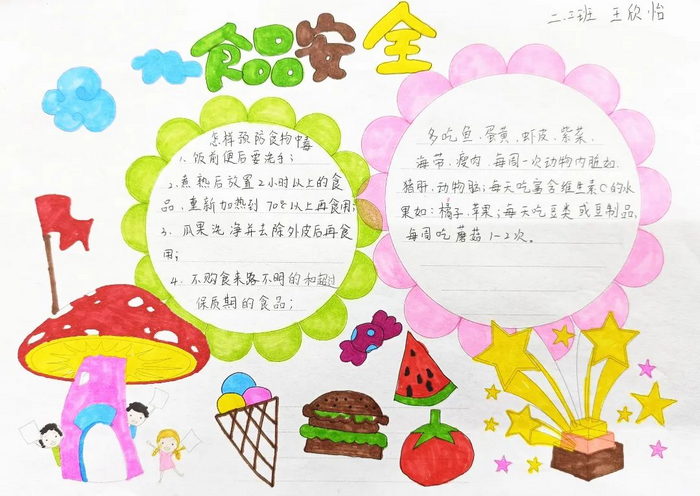 二.二班 王欣怡
食品安全
怎样预防食物中毒
1、饭前便后要洗手；
2.煮熟后放置2小时以上的食
品，重新加热到70℃以上再食用；
3、瓜果洗净并去除外皮后再食
用；
4、不购食来路不明的和超过
保质期的食品；
多吃鱼.蛋黄.虾皮.紫菜.
海带.瘦肉.每周一次动物内脏如.
猪肝.动物脑；每天吃富含维生素C的水
果如：橘子.苹果；每天吃豆类或豆制品，
每周吃蘑菇1-2次。